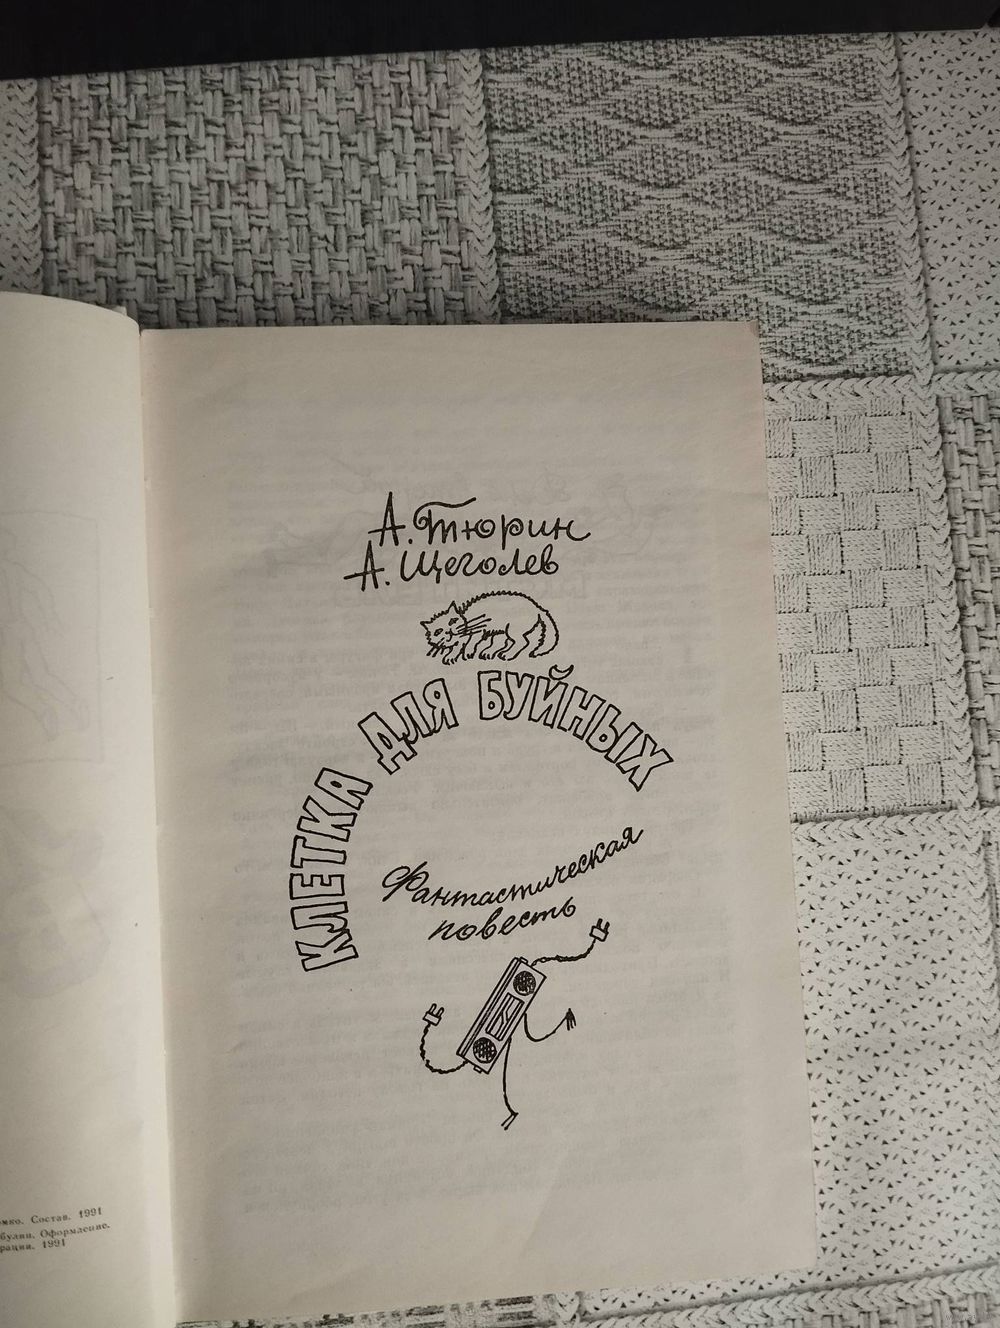 А. Тюрин
А. Щеголев
КЛЕТКА ДЛЯ БУЙНЫХ
Фантастическая
повесть
Состав. 1991
Оформление.
1991